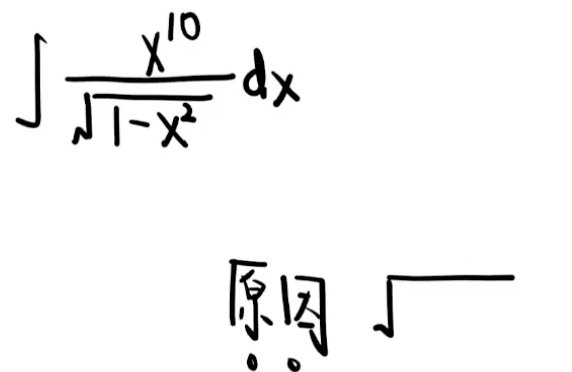 ∫ x^10 / √(1-x^2) dx
原因 √